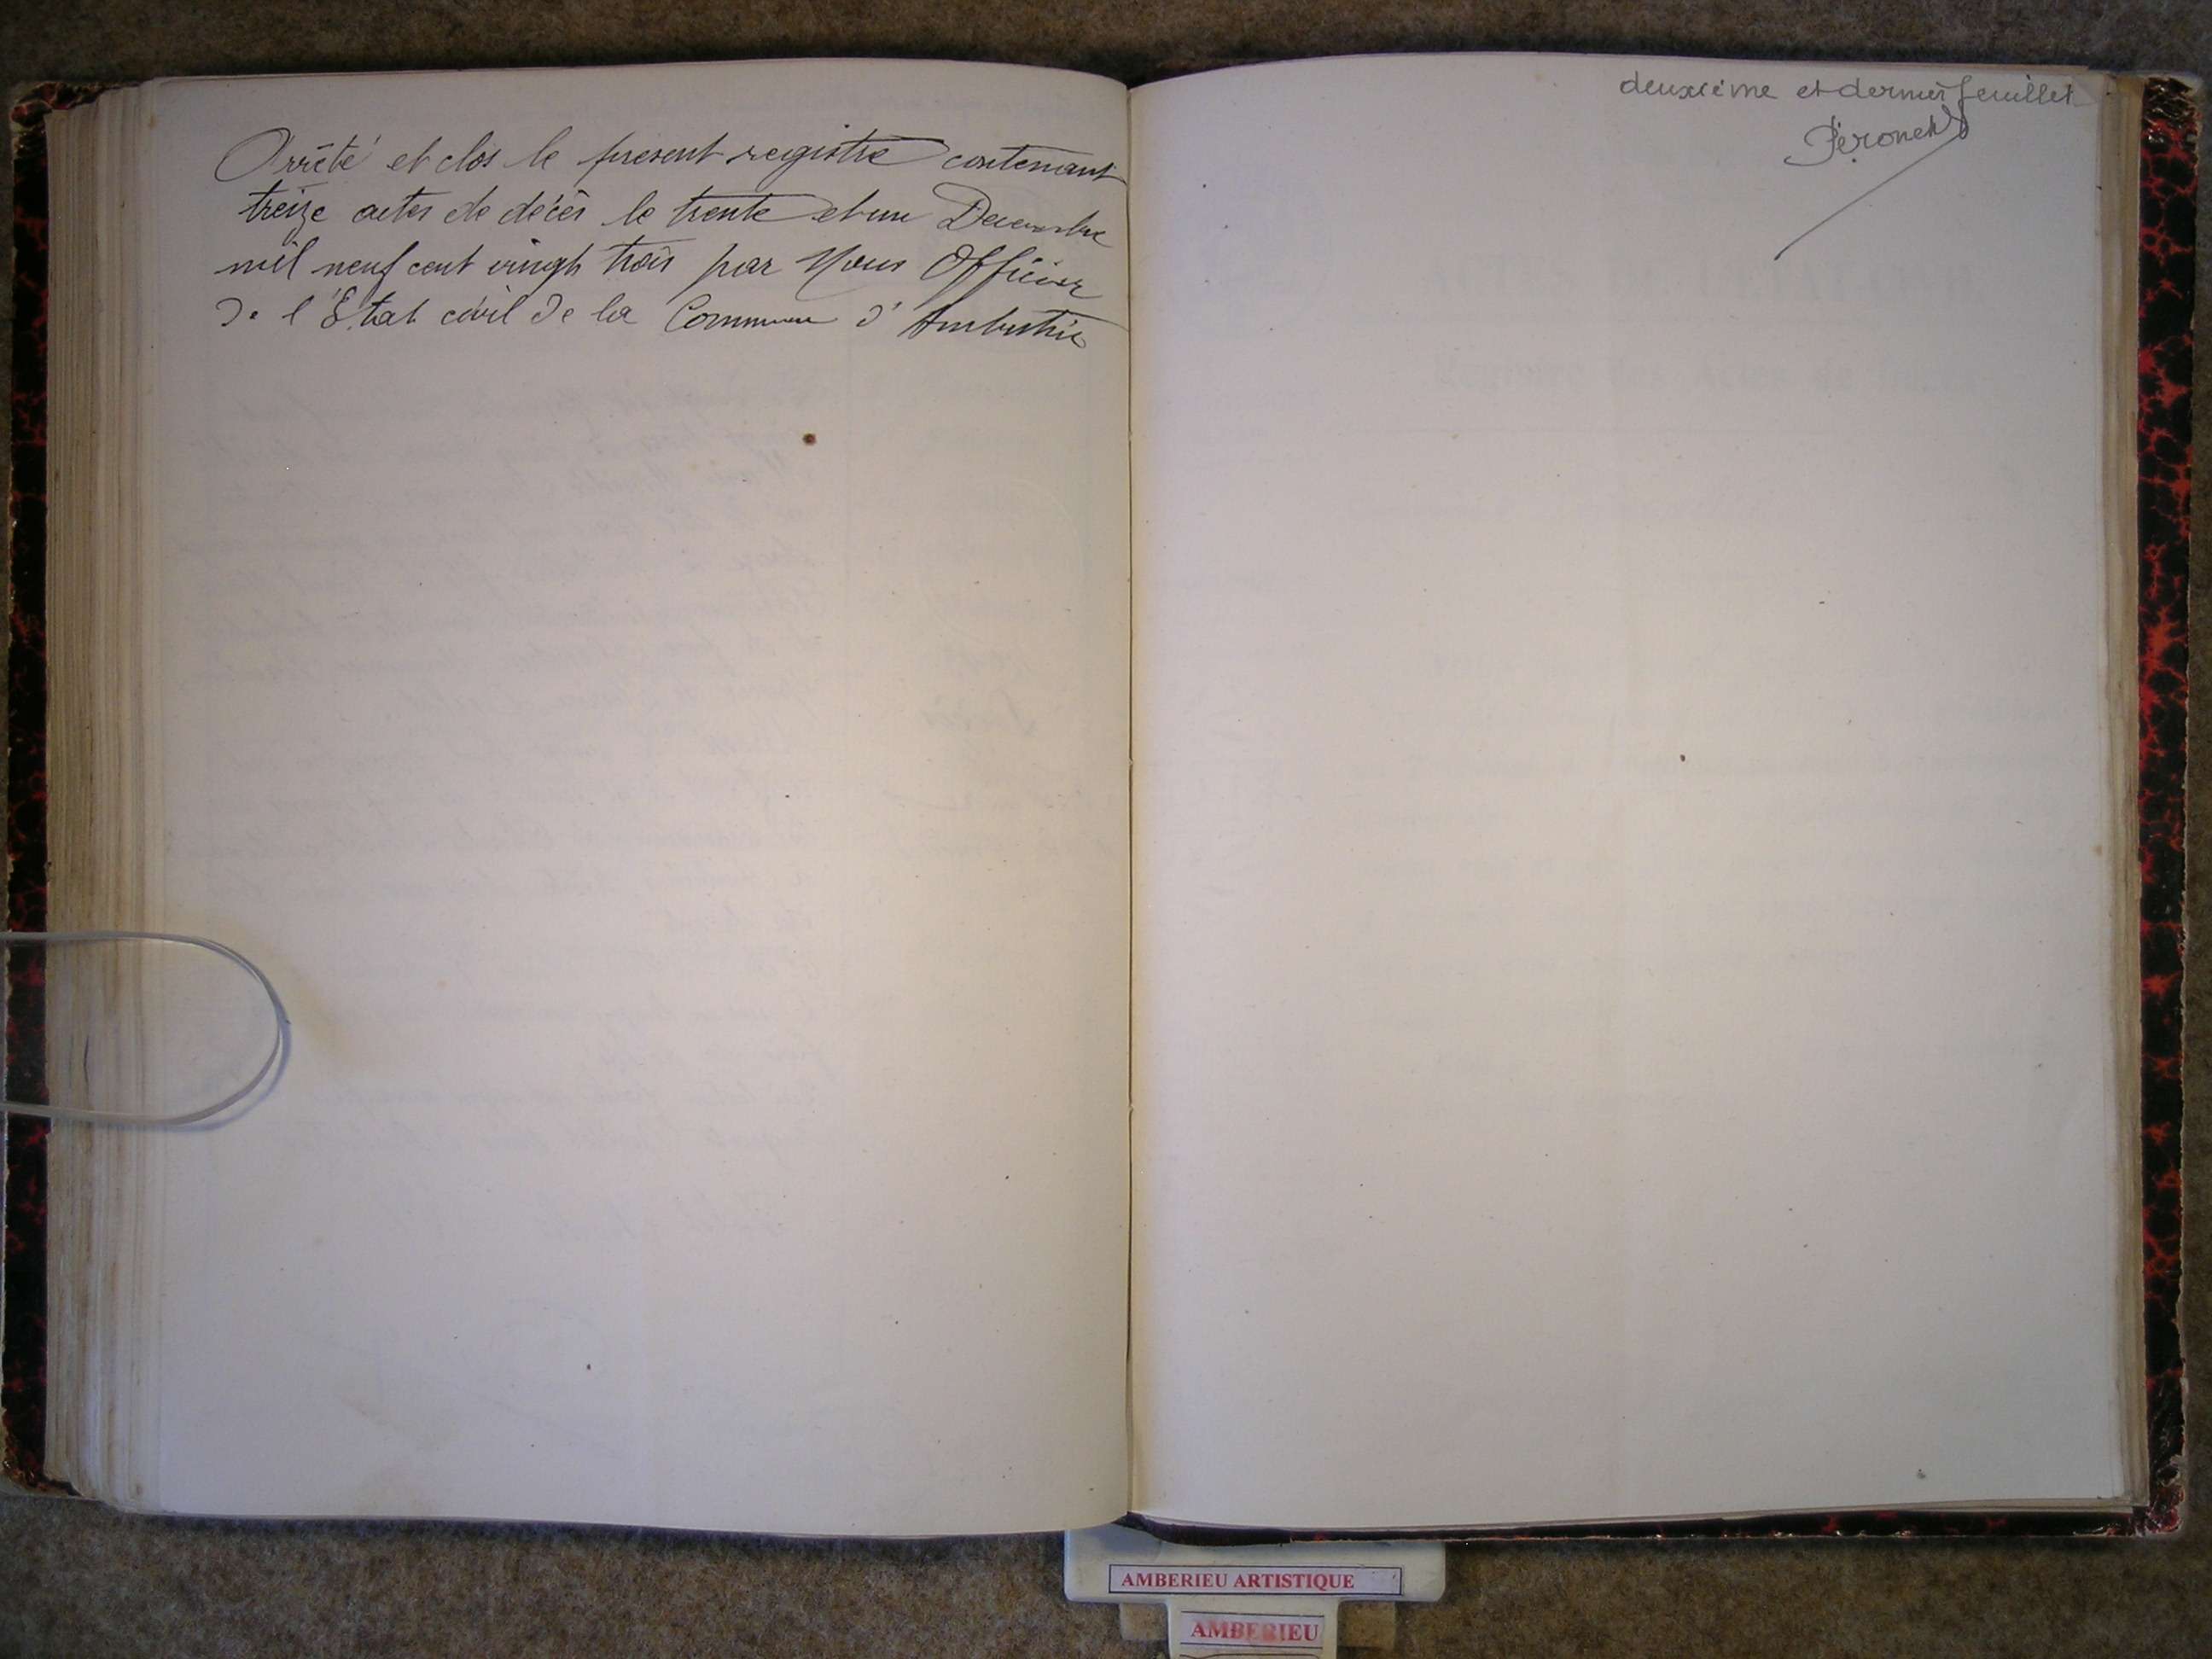 Arrêté et clos le présent registre contenant
treize actes de décès le trente et un Décembre
mil neuf cent vingt trois par Nous Officier
de l'Etat civil de la Commune d'Ambutrix
deuxième et dernier feuillet
Péronet
AMBERIEU ARTISTIQUE
AMBERIEU